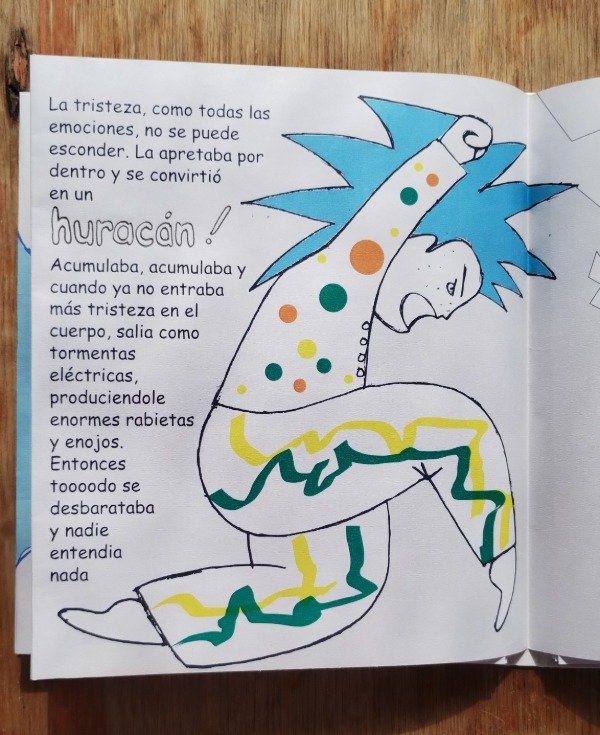 La tristeza, como todas las
emociones, no se puede
esconder. La apretaba por
dentro y se convirtió
en un
huracán!
Acumulaba, acumulaba y
cuando ya no entraba
más tristeza en el
cuerpo, salia como
tormentas
eléctricas,
produciendole
enormes rabietas
y enojos.
Entonces
toooodo se
desbarataba
y nadie
entendia
nada